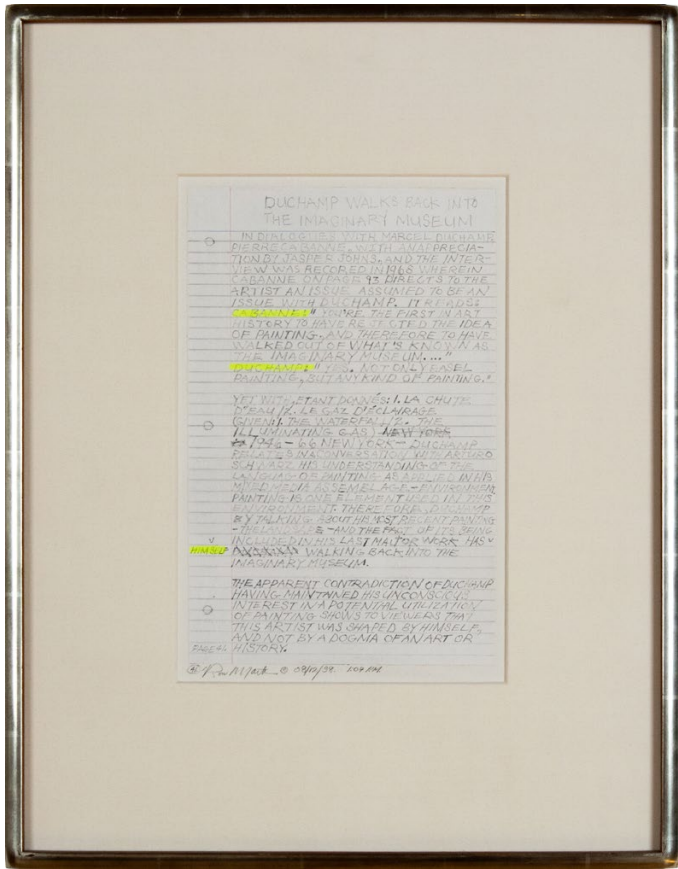 DUCHAMP WALKS BACK INTO
THE IMAGINARY MUSEUM
IN DIALOGUES WITH MARCEL DUCHAMP
PIERRE CABANNE, WITH AN APPRECIA-
TION BY JASPER JOHNS, AND THE INTER-
VIEW WAS RECORED IN 1968 WHEREIN
CABANNE ON PAGE 93 DIRECTS TO THE
ARTIST AN ISSUE ASSUMED TO BE AN
ISSUE WITH DUCHAMP. IT READS:
CABANNE: "YOU'RE THE FIRST IN ART
HISTORY TO HAVE REJECTED THE IDEA
OF PAINTING, AND THEREFORE TO HAVE
WALKED OUT OF WHAT'S KNOWN AS
THE IMAGINARY MUSEUM...."
DUCHAMP: "YES. NOT ONLY EASEL
PAINTING, BUT ANY KIND OF PAINTING."
YET WITH ETANT DONNÉS: 1. LA CHUTE
D'EAU /2. LE GAZ D'ÉCLAIRAGE
(GIVEN: 1. THE WATERFALL /2. THE
ILLUMINATING GAS) NEW YORK
1946-66 NEW YORK- DUCHAMP
RELATES IN A CONVERSATION WITH ARTURO
SCHWARZ HIS UNDERSTANDING OF THE
LANGUAG OF PAINTING AS APPLIED IN HIS
MIXED MEDIA ASSEMBLAGE-ENVIRONMENT.
PAINTING IS ONE ELEMENT USED IN THIS
ENVIRONMENT. THEREFORE, DUCHAMP
BY TALKING ABOUT HIS MOST RECENT PAINTING
- AND THE FACT OF ITS BEING
INCLUDED IN HIS LAST MAJOR WORK HAS
HIMSELF WALKING BACK INTO THE
IMAGINARY MUSEUM.
THE APPARENT CONTRADICTION OF DUCHAMP
HAVING MAINTAINED HIS UNCONSCIOUS
INTEREST IN A POTENTIAL UTILIZATION
OF PAINTING SHOWS TO VIEWERS THAT
THIS ARTIST WAS SHAPED BY HIMSELF,
AND NOT BY A DOGMA OF AN ART OR
HISTORY.